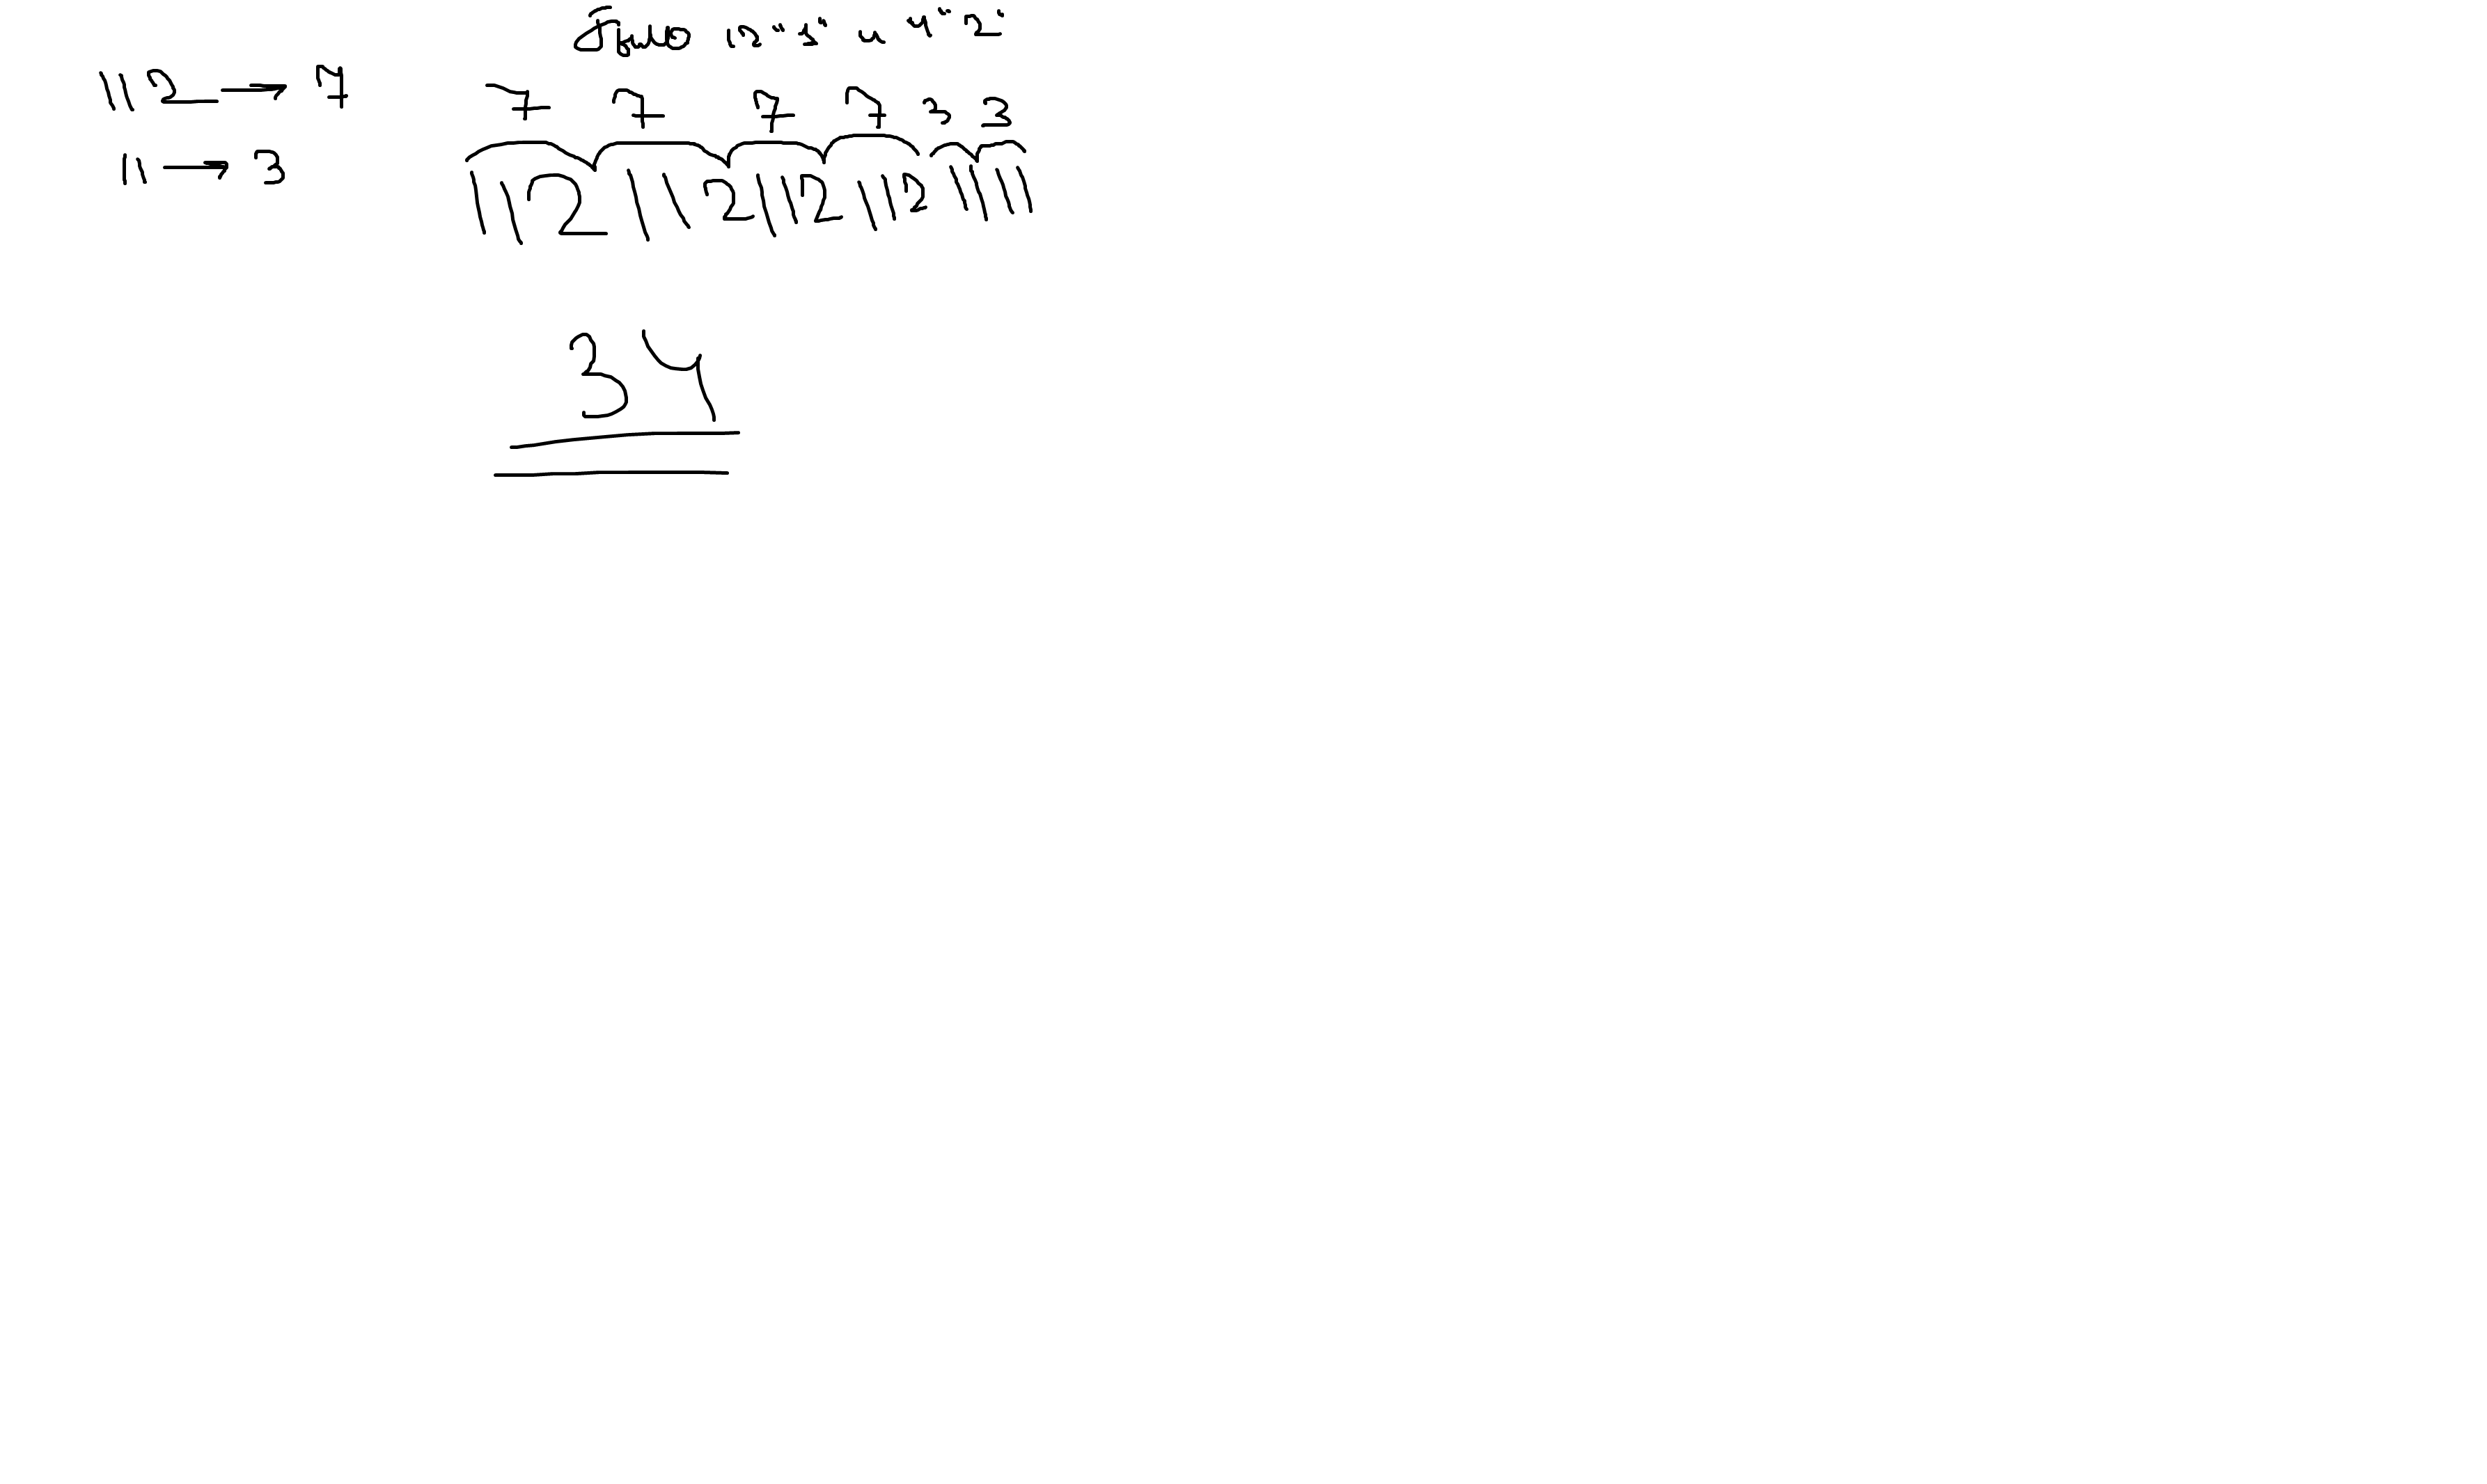 Было 12 "1" и 4 "2"
112 → 7
7 7 7 7 3 3
11 → 3
1121121121121111
34